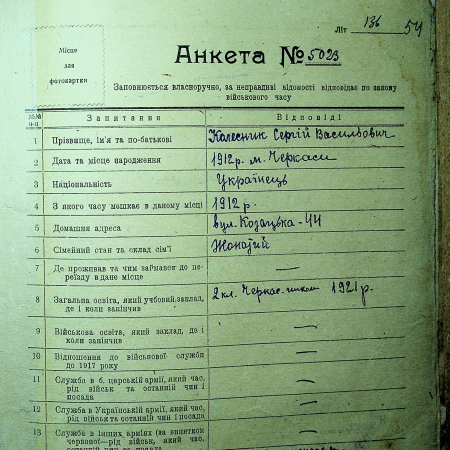 Літ 136 54
Місце
для
фотокартки
Анкета № 5023
Заповнюється власноручно, за неправдиві відомості відповідає по закону
військового часу
№№ п-п. Запитання Відповіді
1 Прізвище, ім'я та по-батькові Колесник Сергій Васильович
2 Дата та місце народження 1912 р. м. Черкаси
3 Національність Українець
4 З якого часу мешкає в даному місці 1912 р.
5 Домашня адреса вул. Козацька - 44
6 Сімейний стан та склад сім'ї Жонатий
7 Де проживав та чим займався до пе-
реїзду в дане місце —
8 Загальна освіта, який учбовий заклад,
де і коли закінчив 2 кл. Черкас. школи 1921 р.
9 Військова освіта, який заклад, де і
коли закінчив —
10 Відношення до військової служби
до 1917 року —
11 Служба в б. царській армії, який час,
рід військ та останній чин і
посада —
12 Служба в Українській армії, який час,
рід військ та останній чин і посада —
13 Служба в інших арміях (за винятком
червоної—рід військ, який час,